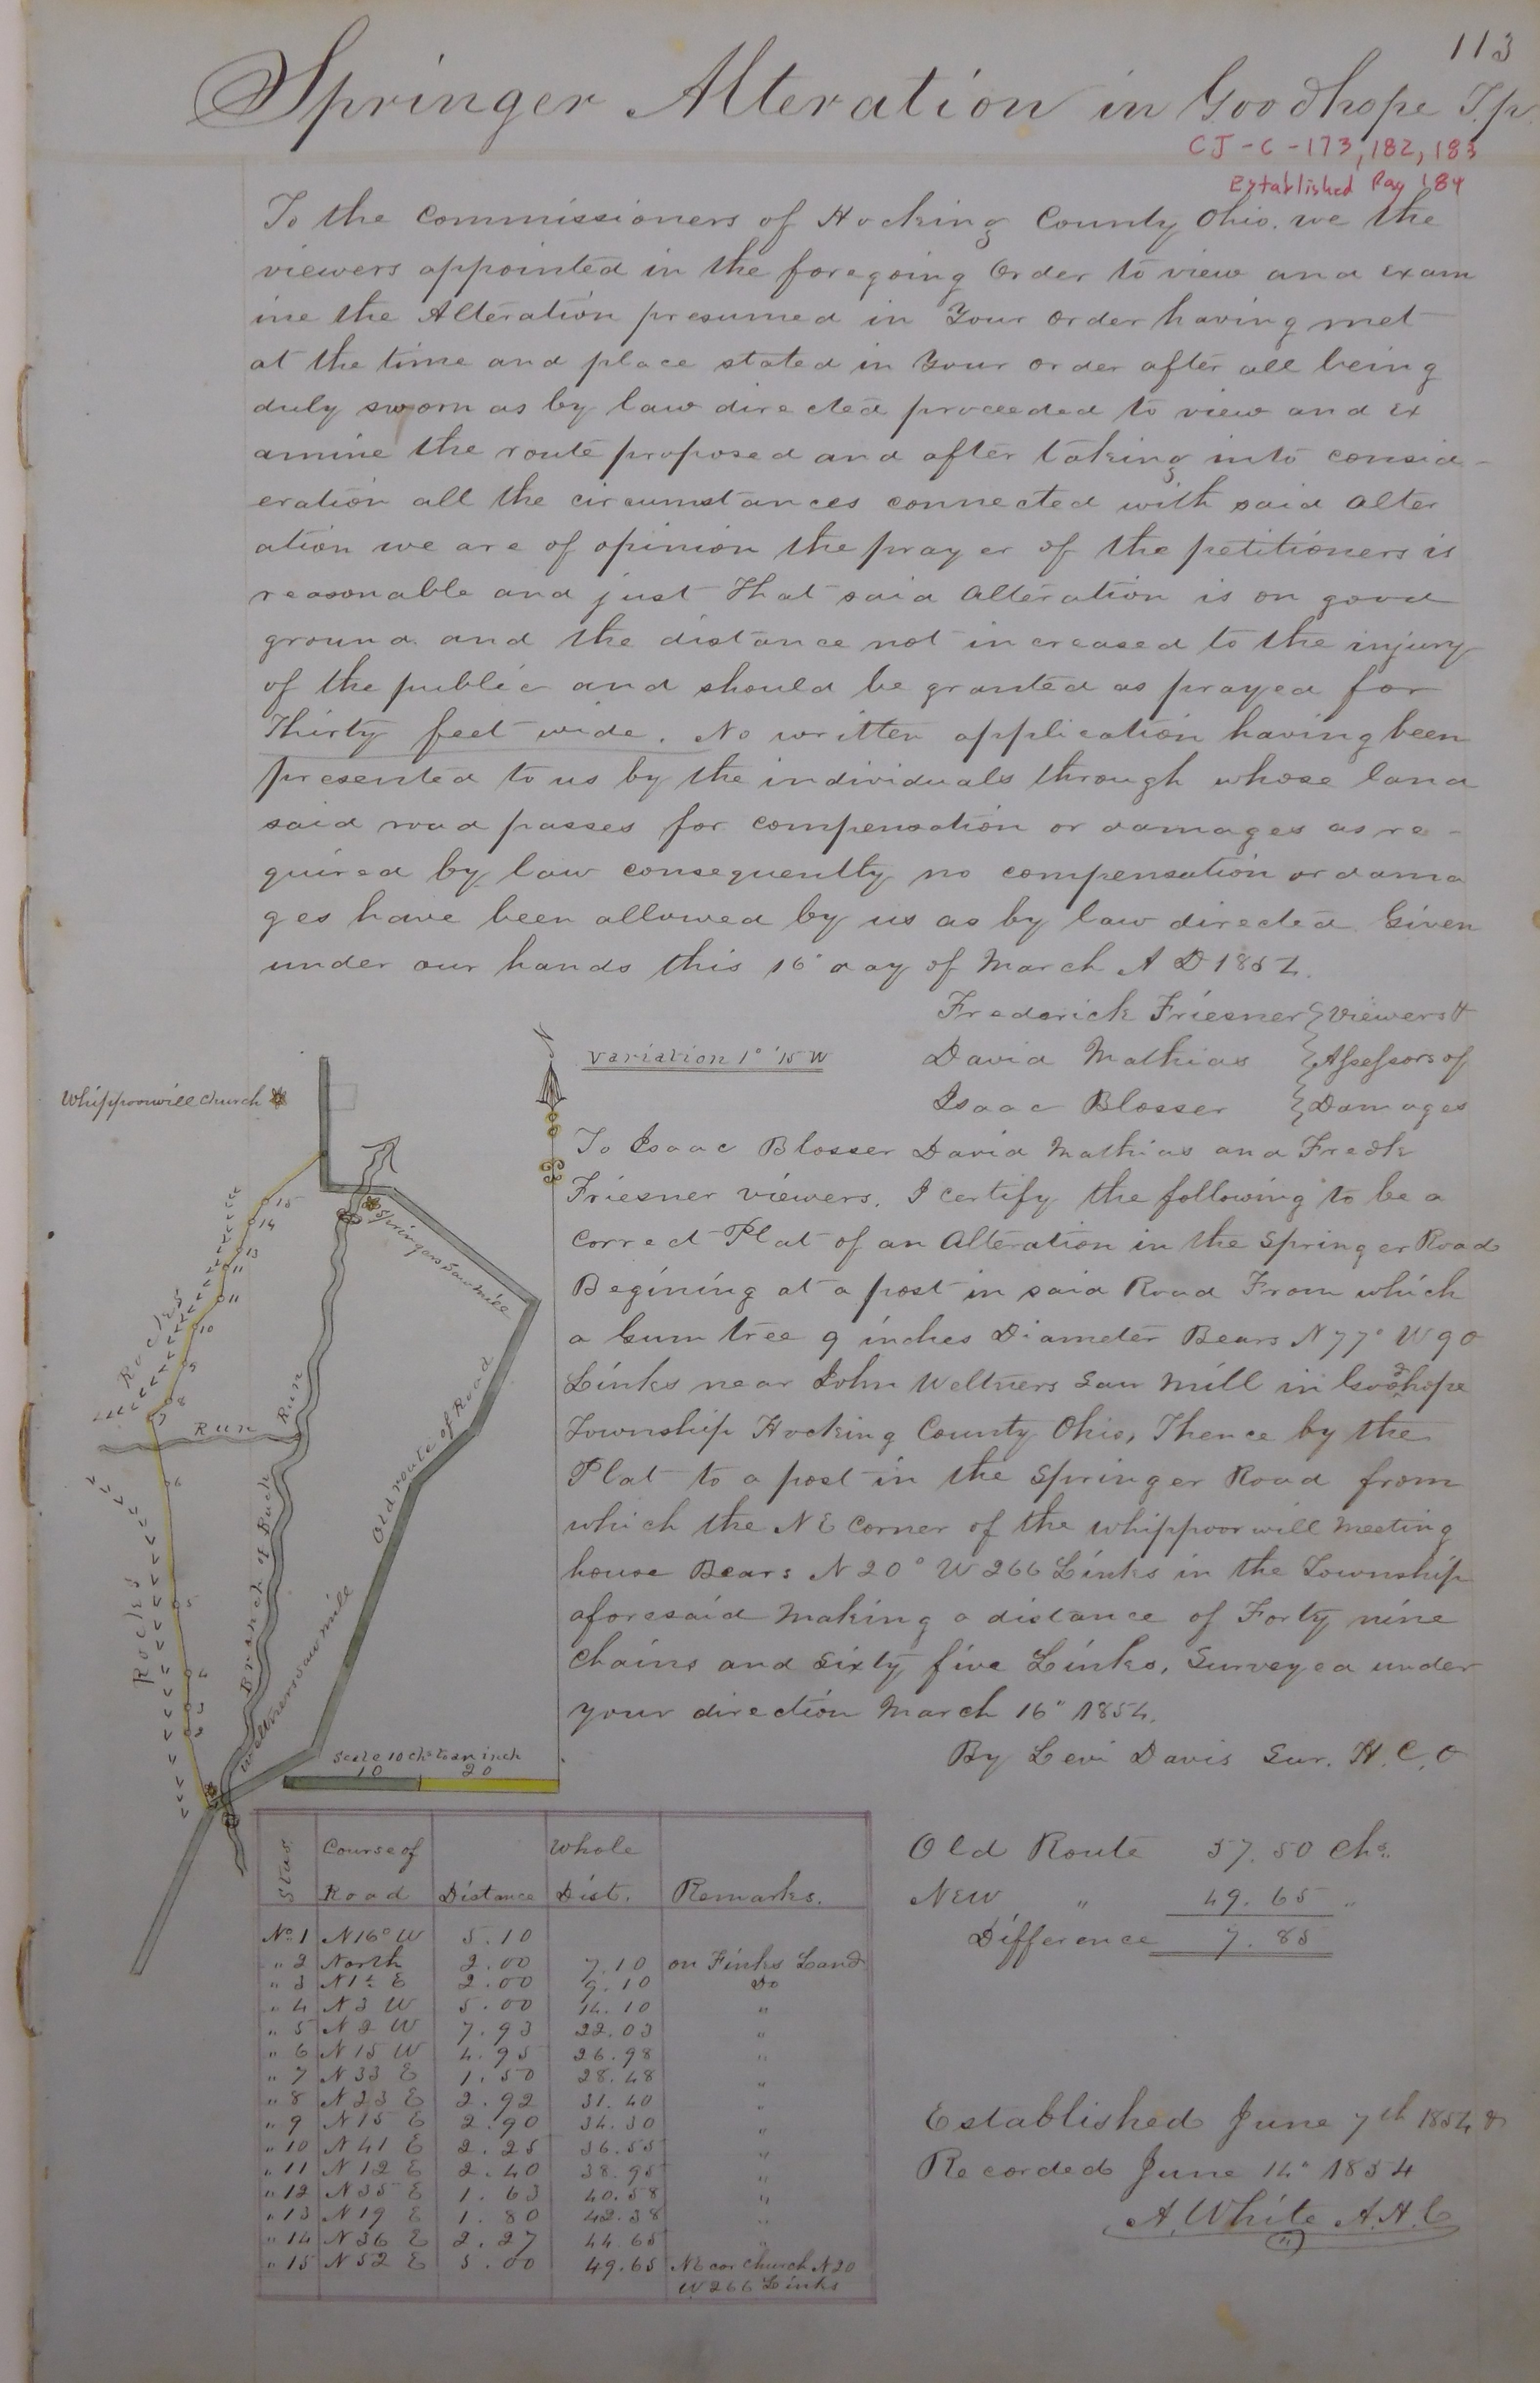 113
Springer Alteration in Goodhope T.p.
CJ-C-173,182,183
Established Pag 184
To the Commissioners of Hocking County Ohio. we the
viewers appointed in the foregoing Order to view and Exam
ine the Alteration presumed in Your order having met
at the time and place stated in Your order after all being
duly sworn as by law directed proceeded to view and Ex
amine the route proposed and after taking into consid-
eration all the circumstances connected with said alter
ation we are of opinion the prayer of the petitioners is
reasonable and just That said Alteration is on good
ground and the distance not increased to the injury
of the public and should be granted as prayed for
Thirty feet wide. No written application having been
presented to us by the individuals through whose land
said road passes for compensation or damages as re-
quired by law consequently no compensation or dama
ges have been allowed by us as by law directed. Given
under our hands this 16" day of March A D 1854.
Frederick Friesner } Viewers &
David Mathias } Assessors of
Isaac Blosser } Damages
Variation 1° '15 W
Whippoorwill Church
To Isaac Blosser David Mathias and Fredk
Friesner viewers. I certify the following to be a
Correct Plat of an Alteration in the Springer Road
Begining at a post in said Road From which
a Gum tree 9 inches Diameter Bears N 77° W 90
Links near John Weltners Saw Mill in Goodhope
Township Hocking County Ohio, Thence by the
Plat to a post in the Springer Road from
which the N E Corner of the whippoorwill Meeting
house Bears N 20° W 266 Links in the Township
aforesaid Making a distance of Forty nine
Chains and Sixty five Links, Surveyed under
your direction March 16" 1854.
By Levi Davis Sur. H. C. O
Springers Sawmill
15
14
13
11
11
10
9
8
7
6
5
4
3
2
Rocks
Run
Run
Branch of Buck
Old route of Road
Rocks
Weltners sawmill
Scale 10 chs to an inch
10 20
Stas. Course of Road Distance Whole Dist. Remarks.
No. 1 N 16° W 5.10
" 2 North 2.00 7.10 on Finks Land
" 3 N 1½ E 2.00 9.10 Do
" 4 N 3 W 5.00 14.10 "
" 5 N 2 W 7.93 22.03 "
" 6 N 15 W 4.95 26.98 "
" 7 N 33 E 1.50 28.48 "
" 8 N 23 E 2.92 31.40 "
" 9 N 15 E 2.90 34.30 "
" 10 N 41 E 2.25 36.55 "
" 11 N 12 E 2.40 38.95 "
" 12 N 35 E 1.63 40.58 "
" 13 N 19 E 1.80 42.38 "
" 14 N 36 E 2.27 44.65 "
" 15 N 52 E 5.00 49.65 NE cor Church N 20
W 266 Links
Old Route 57.50 Chs.
New " 49.65 "
Difference 7.85
Established June 7th 1854 &
Recorded June 14" 1854
A. White A.H.C